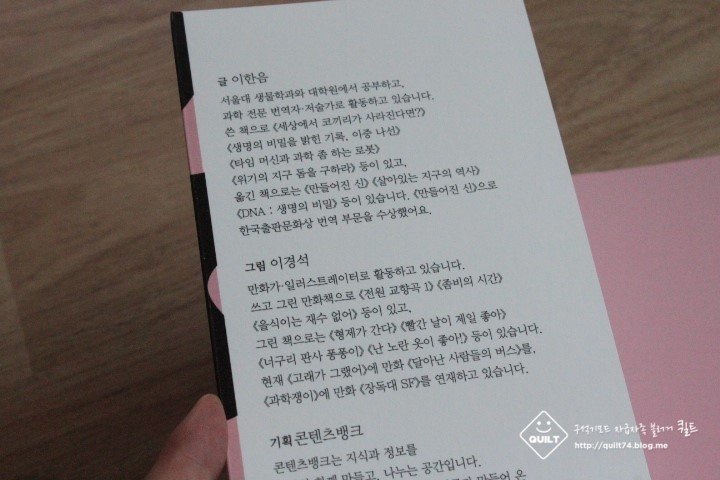 글 이한음
서울대 생물학과와 대학원에서 공부하고,
과학 전문 번역자·저술가로 활동하고 있습니다.
쓴 책으로 《세상에서 코끼리가 사라진다면?》
《생명의 비밀을 밝힌 기록, 이중 나선》
《타임 머신과 과학 좀 하는 로봇》
《위기의 지구 돔을 구하라》 등이 있고,
옮긴 책으로는 《만들어진 신》 《살아있는 지구의 역사》
《DNA : 생명의 비밀》 등이 있습니다. 《만들어진 신》으로
한국출판문화상 번역 부문을 수상했어요.
그림 이경석
만화가·일러스트레이터로 활동하고 있습니다.
쓰고 그린 만화책으로 《전원 교향곡 1》 《좀비의 시간》
《을식이는 재수 없어》 등이 있고,
그린 책으로는 《형제가 간다》 《빨간 날이 제일 좋아》
《너구리 판사 퐁퐁이》 《난 노란 옷이 좋아!》 등이 있습니다.
현재 《고래가 그랬어》에 만화 《달아난 사람들의 버스》를,
《과학쟁이》에 만화 《장독대 SF》를 연재하고 있습니다.
기획 콘텐츠뱅크
콘텐츠뱅크는 지식과 정보를
함께 만들고, 나누는 공간입니다.
만들어 온
QUILT
구석기모드 자급자족 블러거 퀼트
http://quilt74.blog.me